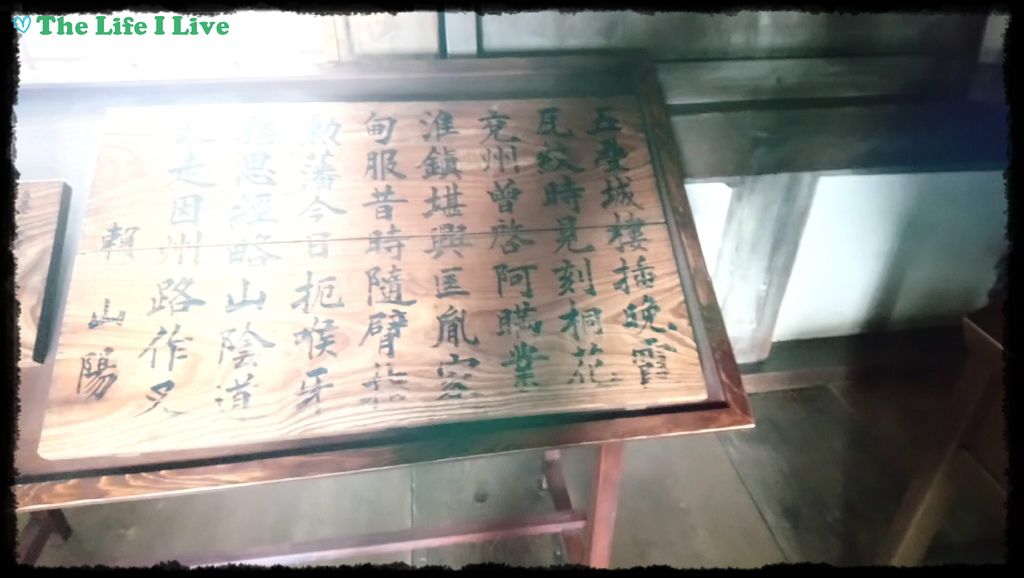 The Life I Live
五疊城樓插晚霞
瓦紋時見刻桐花
兗州曾啓阿瞞業
淮鎮堪興匡胤家
甸服昔時隨臂指
勳藩今日扼喉牙
思經略山陰道
走因州路作叉
賴山陽